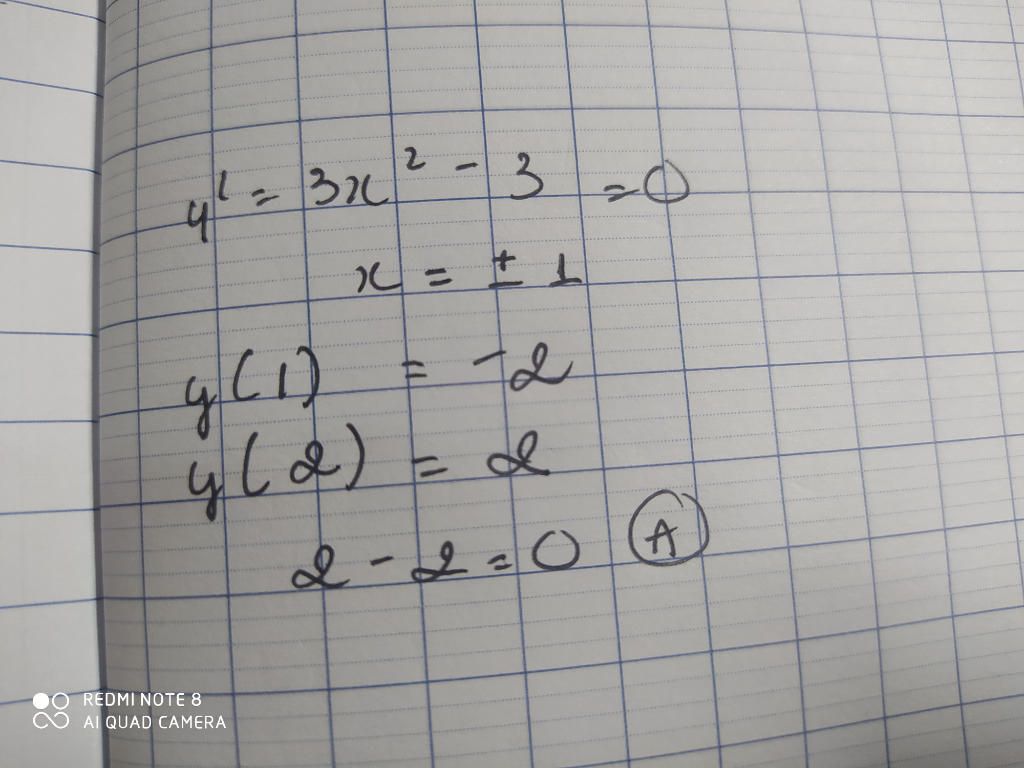 y' = 3x² - 3 = 0
x = ± 1
y(1) = -2
y(2) = 2
2 - 2 = 0 A
REDMI NOTE 8
AI QUAD CAMERA